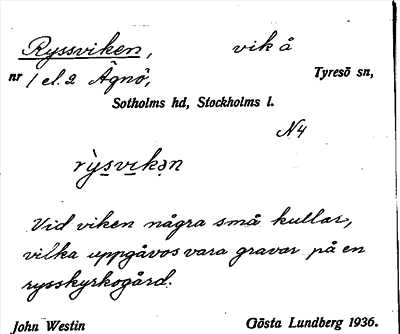 Ryssviken, vik å
nr 1 el. 2 Ägnö, Tyresö sn,
Sotholms hd, Stockholms l.
N4
rỳsvikən
Vid viken några små kullar,
vilka uppgåvos vara gravar på en
rysskyrkogård.
John Westin Gösta Lundberg 1936.